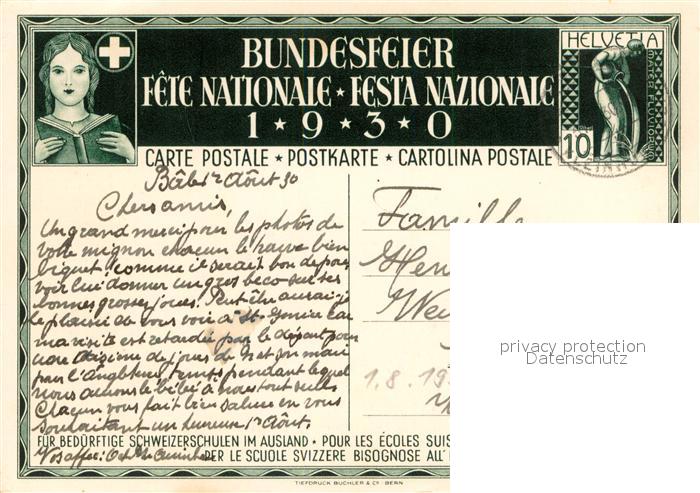 BUNDESFEIER
FÊTE NATIONALE ★ FESTA NAZIONALE
1 ★ 9 ★ 3 ★ 0
HELVETIA
MATER FLUVIORUM
10
CARTE POSTALE ★ POSTKARTE ★ CARTOLINA POSTALE
Bâle 1r Août 30
Chers amis,
Un grand merci pour les photos de
votre mignon chacun le trouve bien
comme il serait bon de pou
voir lui donner un gros beco sur ses
bonnes grosses joues. Peut être aurai je
le plaisir de vous voir à St. car
ma visite est retardée par le départ pour
une dizaine de jours de et mon mari
pour l'Angleterre temps pendant lequel
nous aurons le bébé à nous tout seuls
Chacun vous fait bien saluer en vous
souhaitant un heureux 1r Août.
Famille
1.8.19
privacy protection
Datenschutz
FÜR BEDÜRFTIGE SCHWEIZERSCHULEN IM AUSLAND • POUR LES ÉCOLES SUIS
PER LE SCUOLE SVIZZERE BISOGNOSE ALL'
TIEFDRUCK BÜCHLER & Co BERN